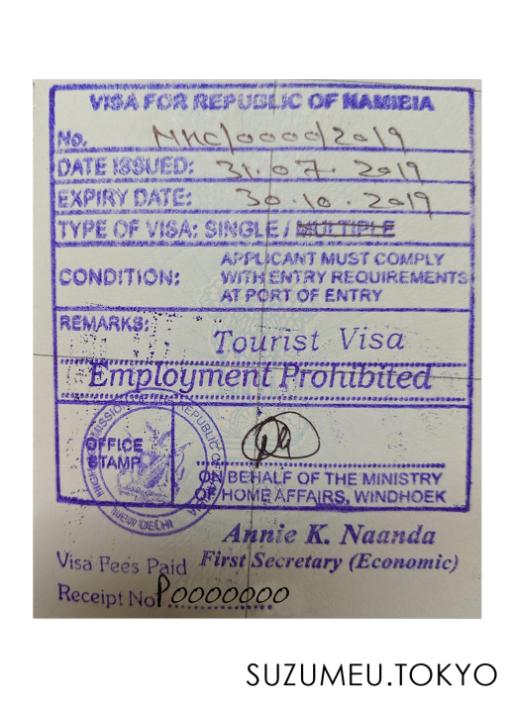 VISA FOR REPUBLIC OF NAMIBIA
No. NHC/0000/2019
DATE ISSUED: 31.07.2019
EXPIRY DATE: 30.10.2019
TYPE OF VISA: SINGLE / MULTIPLE
CONDITION: APPLICANT MUST COMPLY
WITH ENTRY REQUIREMENTS
AT PORT OF ENTRY
REMARKS: Tourist Visa
Employment Prohibited
OFFICE
STAMP
NEW DELHI
ON BEHALF OF THE MINISTRY
OF HOME AFFAIRS, WINDHOEK
Annie K. Naanda
First Secretary (Economic)
Visa Fees Paid
Receipt No P0000000
SUZUMEU.TOKYO